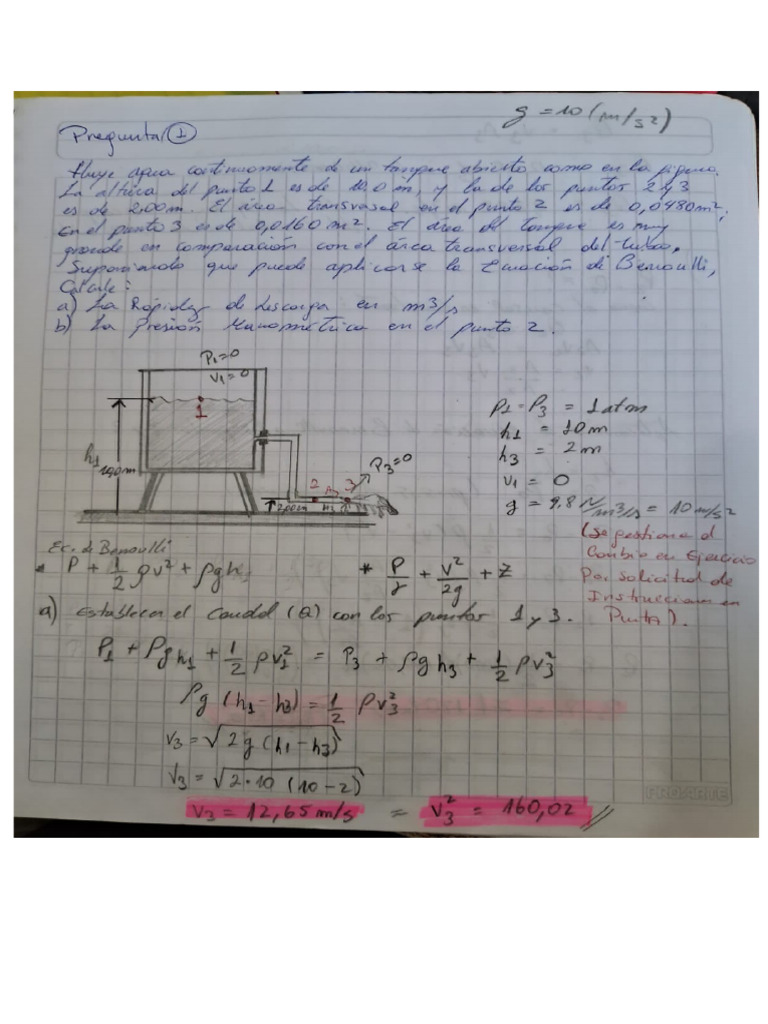 g = 10 (m/s²)
Pregunta ①
Fluye agua continuamente de un tanque abierto como en la figura.
La altura del punto 1 es de 10.0 m, y la de los puntos 2 y 3
es de 2.00 m. El área transversal en el punto 2 es de 0,0480 m²;
En el punto 3 es de 0,0160 m². El área del tanque es muy
grande en comparación con el área transversal del tubo.
Suponiendo que puede aplicarse la Ecuación de Bernoulli,
Calcule:
a) La Rapidez de descarga en m3/s
b) La Presión Manométrica en el punto 2.
P1=0
V1=0
1
h1
10.0m
2
3
P3=0
2.00m
h3
P1 = P3 = 1 atm
h1 = 10 m
h3 = 2 m
v1 = 0
g = 9,8 N/m3/s = 10 m/s²
(se gestiona el
Cambio en Ejercicio
Por solicitud de
Instrucciones en
Pauta).
Ec. de Bernoulli
* P + 1/2 ρv² + ρgh
* P/γ + v²/2g + Z
a) Establecer el Caudal (Q) con los puntos 1 y 3.
P1 + ρgh1 + 1/2 ρv1² = P3 + ρgh3 + 1/2 ρv3²
ρg (h1 - h3) = 1/2 ρv3²
v3 = √2g (h1 - h3)
v3 = √2·10 (10 - 2)
v3 = 12,65 m/s = v3² = 160,02 //
PROARTE